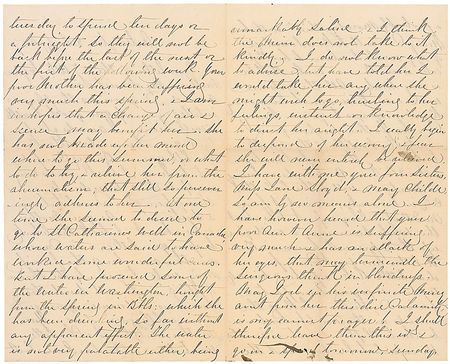 tuesday to spend ten days or
a fortnight. So they will not be
back before the last of the next or
the first of the following week. Your
poor Mother has been suffering
very much this spring, & I am
in hopes that a change of air &
scene may benefit her. She
has not made up her mind
where to go this summer, or what
to do to try & relieve her from the
rheumatism, that still so persever
ingly adheres to her. At one
time she seemed to decide to
go to St Catharines Well in Canada
whose waters are said to have
worked some wonderful cures.
but I have procured some of
the water in Washington, brought
from the spring in Bbls: which she
has been drinking, so far without
any apparent effect. The water
is not very palatable either, being
remarkably saline, & I think
the Mim does not take to it
kindly. I do not know what
to advise, but have told her I
would take her any where she
might wish to go, trusting to her
feelings, instinct or knowledge
to direct her aright. I really begin
to despond of her
she will never entirely
I have with me your four sisters,
Miss Jane Lloyd, & May Childe
So am by no means alone. I
have however heard that your
poor Aunt Anne is suffering
very much & has an attack of
her eyes, that may terminate the
surgeons think in blindness.
May God in his infinite Mercy
avert from her this dire Calamity
is my constant prayer & I shall
therefore leave